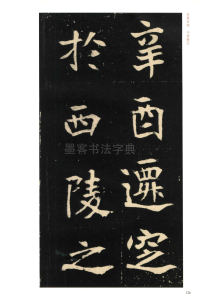 辛酉遷窆
於西陵之
墨客书法字典